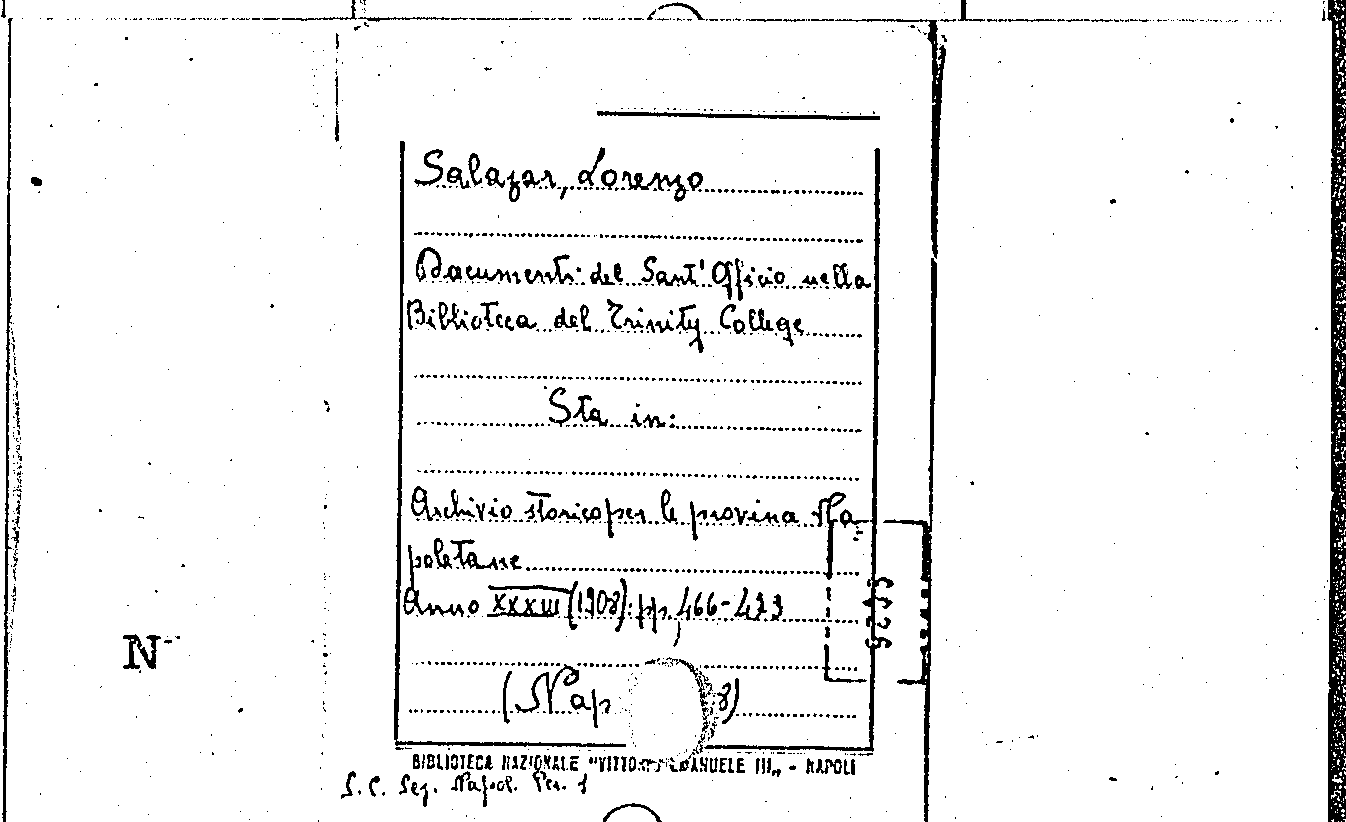 Salazar, Lorenzo
Documenti del Sant' Officio nella
Biblioteca del Trinity College
Sta in:
Archivio storico per le provincie Na
poletane
Anno XXXIII (1908): pp, 466-473
(Nap 8)
BIBLIOTECA NAZIONALE "VITTORIO EMANUELE III„ - NAPOLI
S. C. Sez. Napol. Per. 1
N